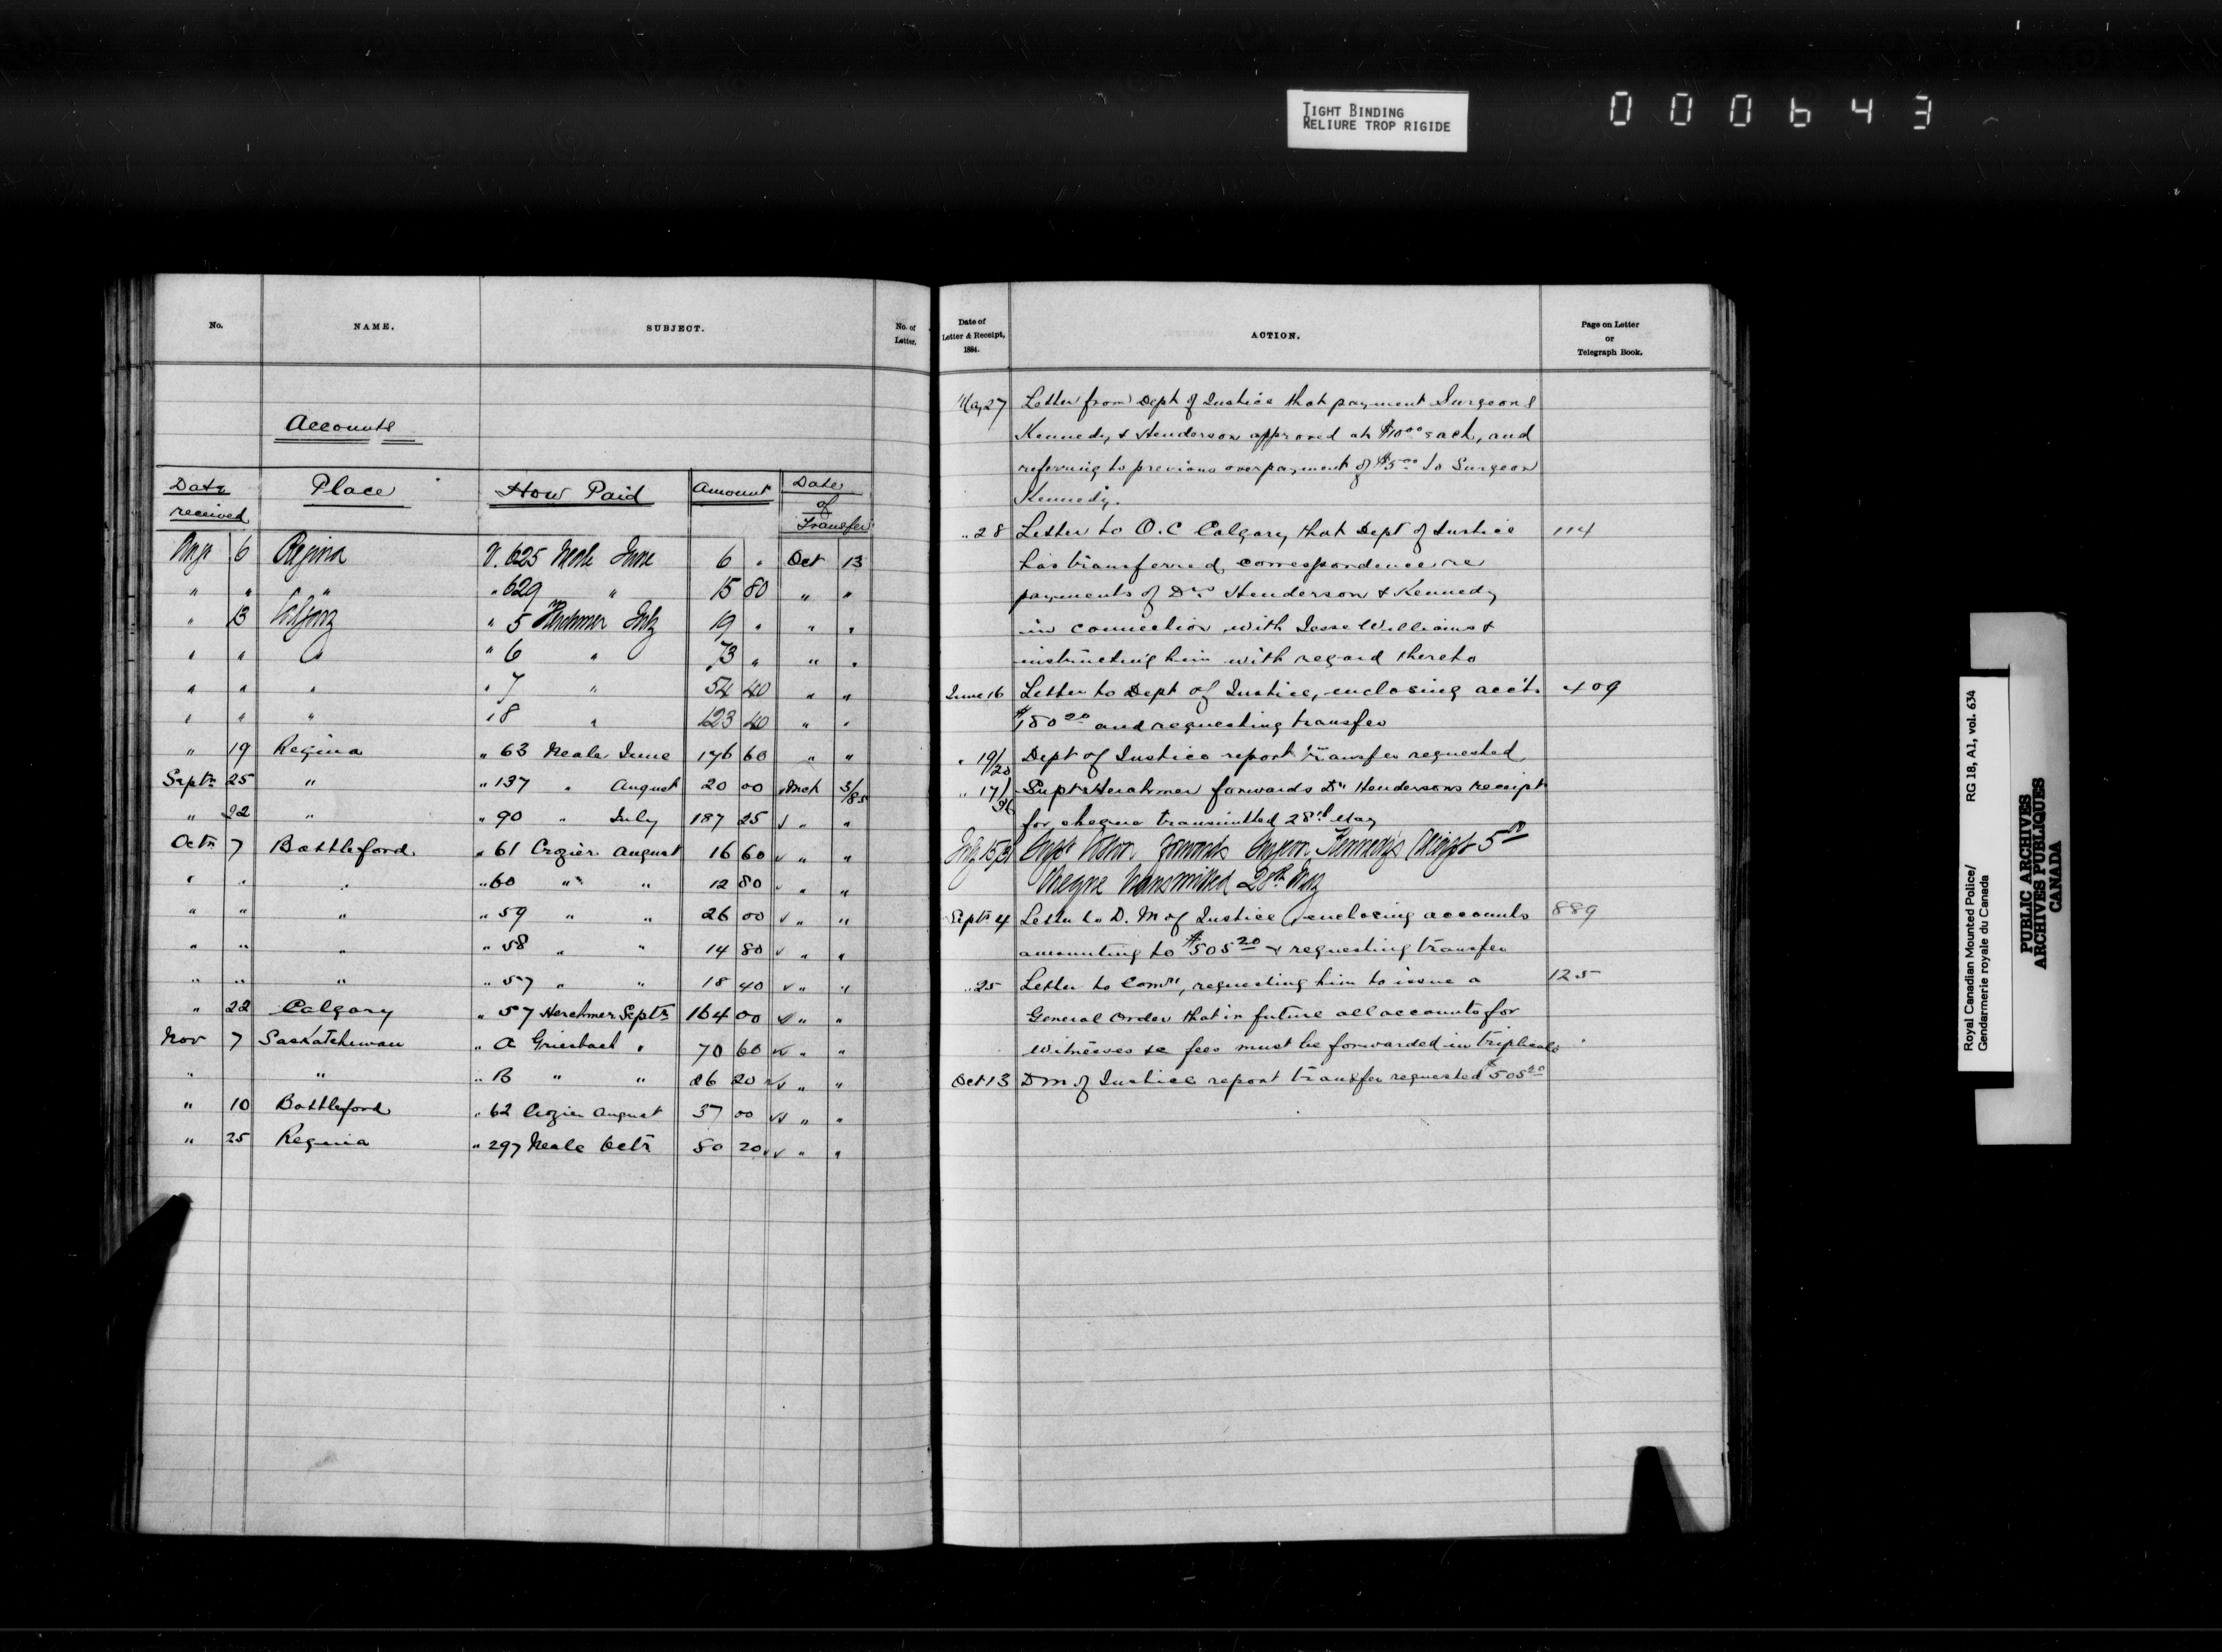 TIGHT BINDING
RELIURE TROP RIGIDE
000643
No. NAME. SUBJECT. No. of Letter.
Accounts
Date received Place How Paid Amount Date of Transfer
Aug 6 Regina V. 625 Neale June 6 " Oct 13
" " " " 629 " 15 80 " "
" 13 Calgary " 5 Herchmer July 19 " " "
" " " " 6 " 73 " " "
" " " " 7 " 54 40 " "
" " " " 8 " 123 40 " "
" 19 Regina " 63 Neale June 176 60 " "
Septr 25 " " 137 " August 20 00 Mch 3/85
" 22 " " 90 " July 187 25 " "
Octr 7 Battleford " 61 Crozier August 16 60 " "
" " " " 60 " " 12 80 " "
" " " " 59 " " 26 00 " "
" " " " 58 " " 14 80 " "
" " " " 57 " " 18 40 " "
" 22 Calgary " 57 Herchmer Septr 164 00 " "
Nov 7 Saskatchewan " A Griesbach " 70 60 " "
" " " B " " 26 20 " "
" 10 Battleford " 62 Crozier August 37 00 " "
" 25 Regina " 297 Neale Octr 80 20 " "
Date of Letter & Receipt, 1884. ACTION. Page on Letter or Telegraph Book.
May 27 Letter from Dept of Justice that payment Surgeons
Kennedy & Henderson approved at $10 00 each, and
referring to previous overpayment of $5 00 to Surgeon
Kennedy.
" 28 Letter to O.C Calgary, that Dept of Justice 114
has transferred correspondence re
payments of Drs Henderson & Kennedy
in connection with Jesse Williams &
instructing him with regard thereto
June 16 Letter to Dept of Justice, enclosing acct. 409
$180 20 and requesting transfer
" 19/20 Dept of Justice report transfer requested
" 17/ Supt Herchmer forwards Dr Hendersons receipt
for cheque transmitted 28th May
July 15 Supt forwards Surgeon Kennedy's receipt 5 00
Cheque transmitted 28th May
Septr 4 Letter to D. M of Justice enclosing accounts 889
amounting to $505 20 & requesting transfer
" 25 Letter to Comr, requesting him to issue a 125
General Order that in future all accounts for
witnesses &c fees must be forwarded in triplicate
Oct 13 D M of Justice report transfer requested $505 20
Royal Canadian Mounted Police/ RG 18, A1, vol. 634
Gendarmerie royale du Canada
PUBLIC ARCHIVES
ARCHIVES PUBLIQUES
CANADA